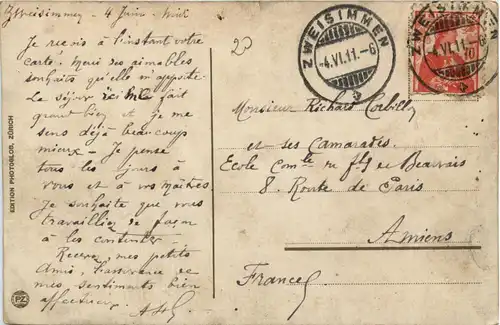 Zweisimmen - 4 Juin - midi
Je reçois à l'instant votre
carte. Mais les aimables
souhaits qu'elle m'apporte.
Le séjour ici me fait
grand bien et je me
sens déjà beaucoup
mieux. Je pense
tous les jours à
vous et à vos Maîtres.
Je souhaite que vous
travailliez de façon
à les contenter.
Recevez, mes petits
Amis, l'assurance de
mes sentiments bien
affectueux.
EDITION PHOTOGLOB, ZÜRICH
PZ
ZWEISIMMEN
-4.VI.11.-6
ZWEISIMMEN
-4.VI.11.
10
Monsieur Richard
et ses Camarades.
Ecole Comle
de Beauvais
8 Route de Paris
Amiens
France